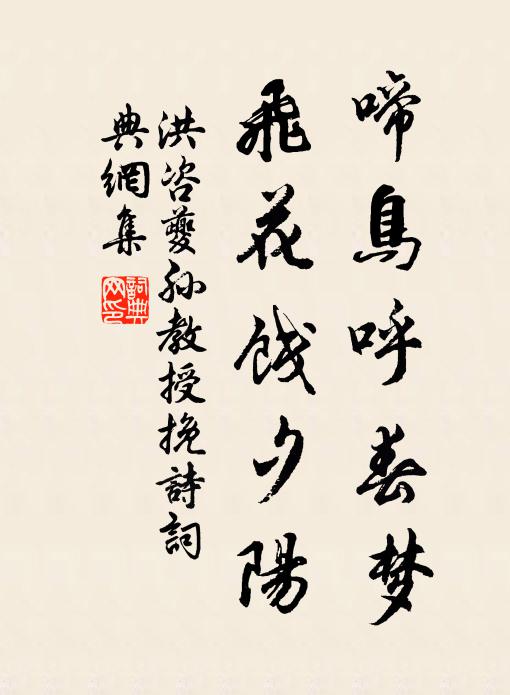 啼鳥呼春梦
飛花饯夕陽
洪咨夔孙教授挽詩詞
典網集
詞典
网印